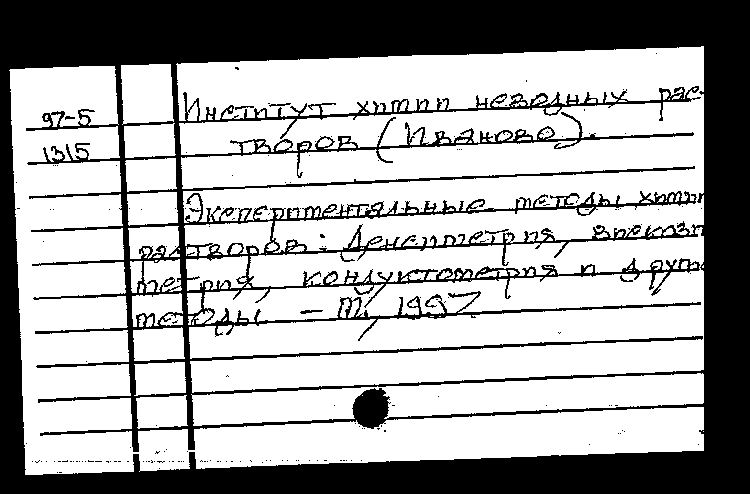 97-5
1315
Институт химии неводных рас-
творов (Иваново).
Экспериментальные методы химии
растворов: Денсиметрия, вискози
метрия, кондуктометрия и другие
методы – М, 1997